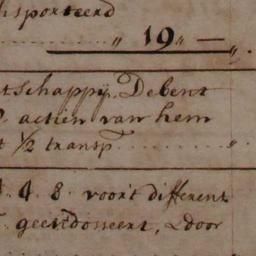 sporteerd
" 19 " —
tschappij. Debent
actien van hem
t 1/2 transp
4. 8. voor't different
geendosseert, door